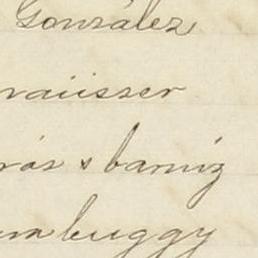 González
vaiisser
rás y barniz
un buggy